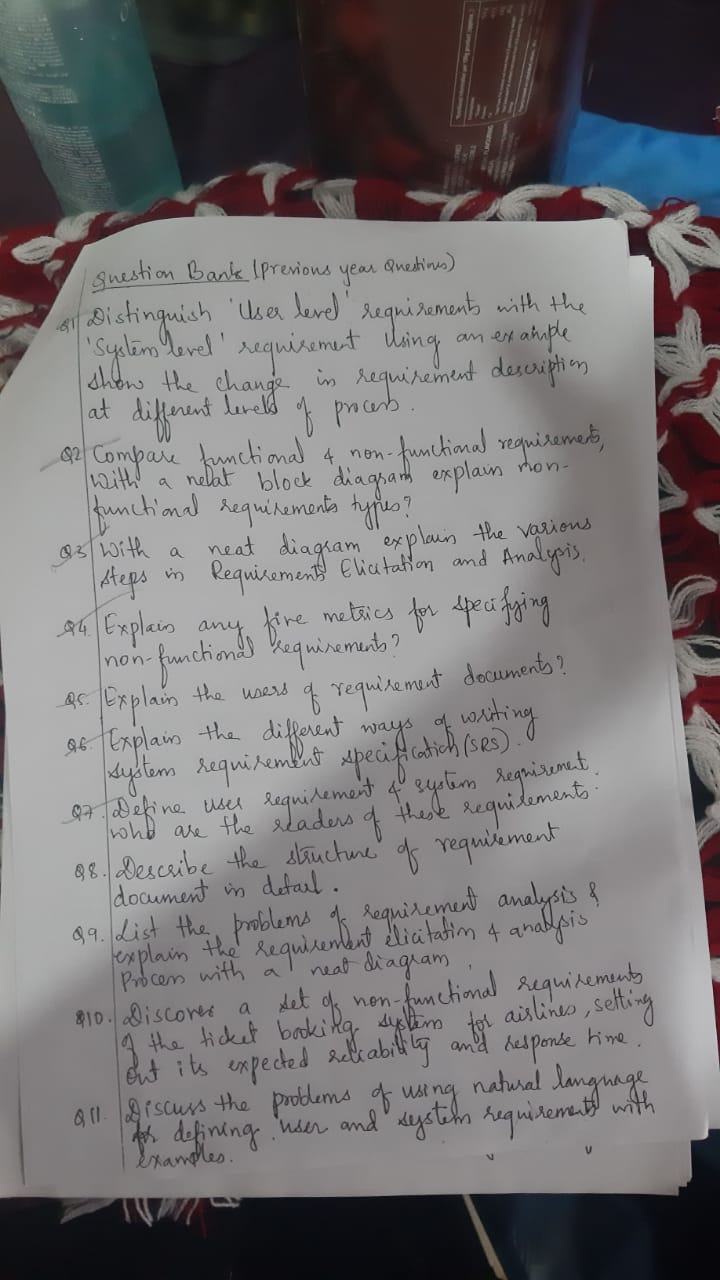 Question Bank (Previous year Questions)
Q1 Distinguish 'User level' requirements with the
'System level' requirement Using an example
show the change in requirement description
at different levels of process.
Q2 Compare functional & non-functional requirements,
With a neat block diagram explain non-
functional requirements types?
Q3 With a neat diagram explain the various
steps in Requirements Elicitation and Analysis.
Q4. Explain any five metrics for specifying
non-functional requirements?
Q5. Explain the users of requirement documents?
Q6. Explain the different ways of writing
system requirement specification (SRS).
Q7. Define user requirement & system requirement.
who are the readers of these requirements.
Q8. Describe the structure of requirement
document in detail.
Q9. List the problems of requirement analysis &
explain the requirement elicitation & analysis
Process with a neat diagram.
Q10. Discover a set of non-functional requirements
of the ticket booking system for airlines, setting
out its expected reliability and response time.
Q11. Discuss the problems of using natural language
for defining user and system requirements with
examples.